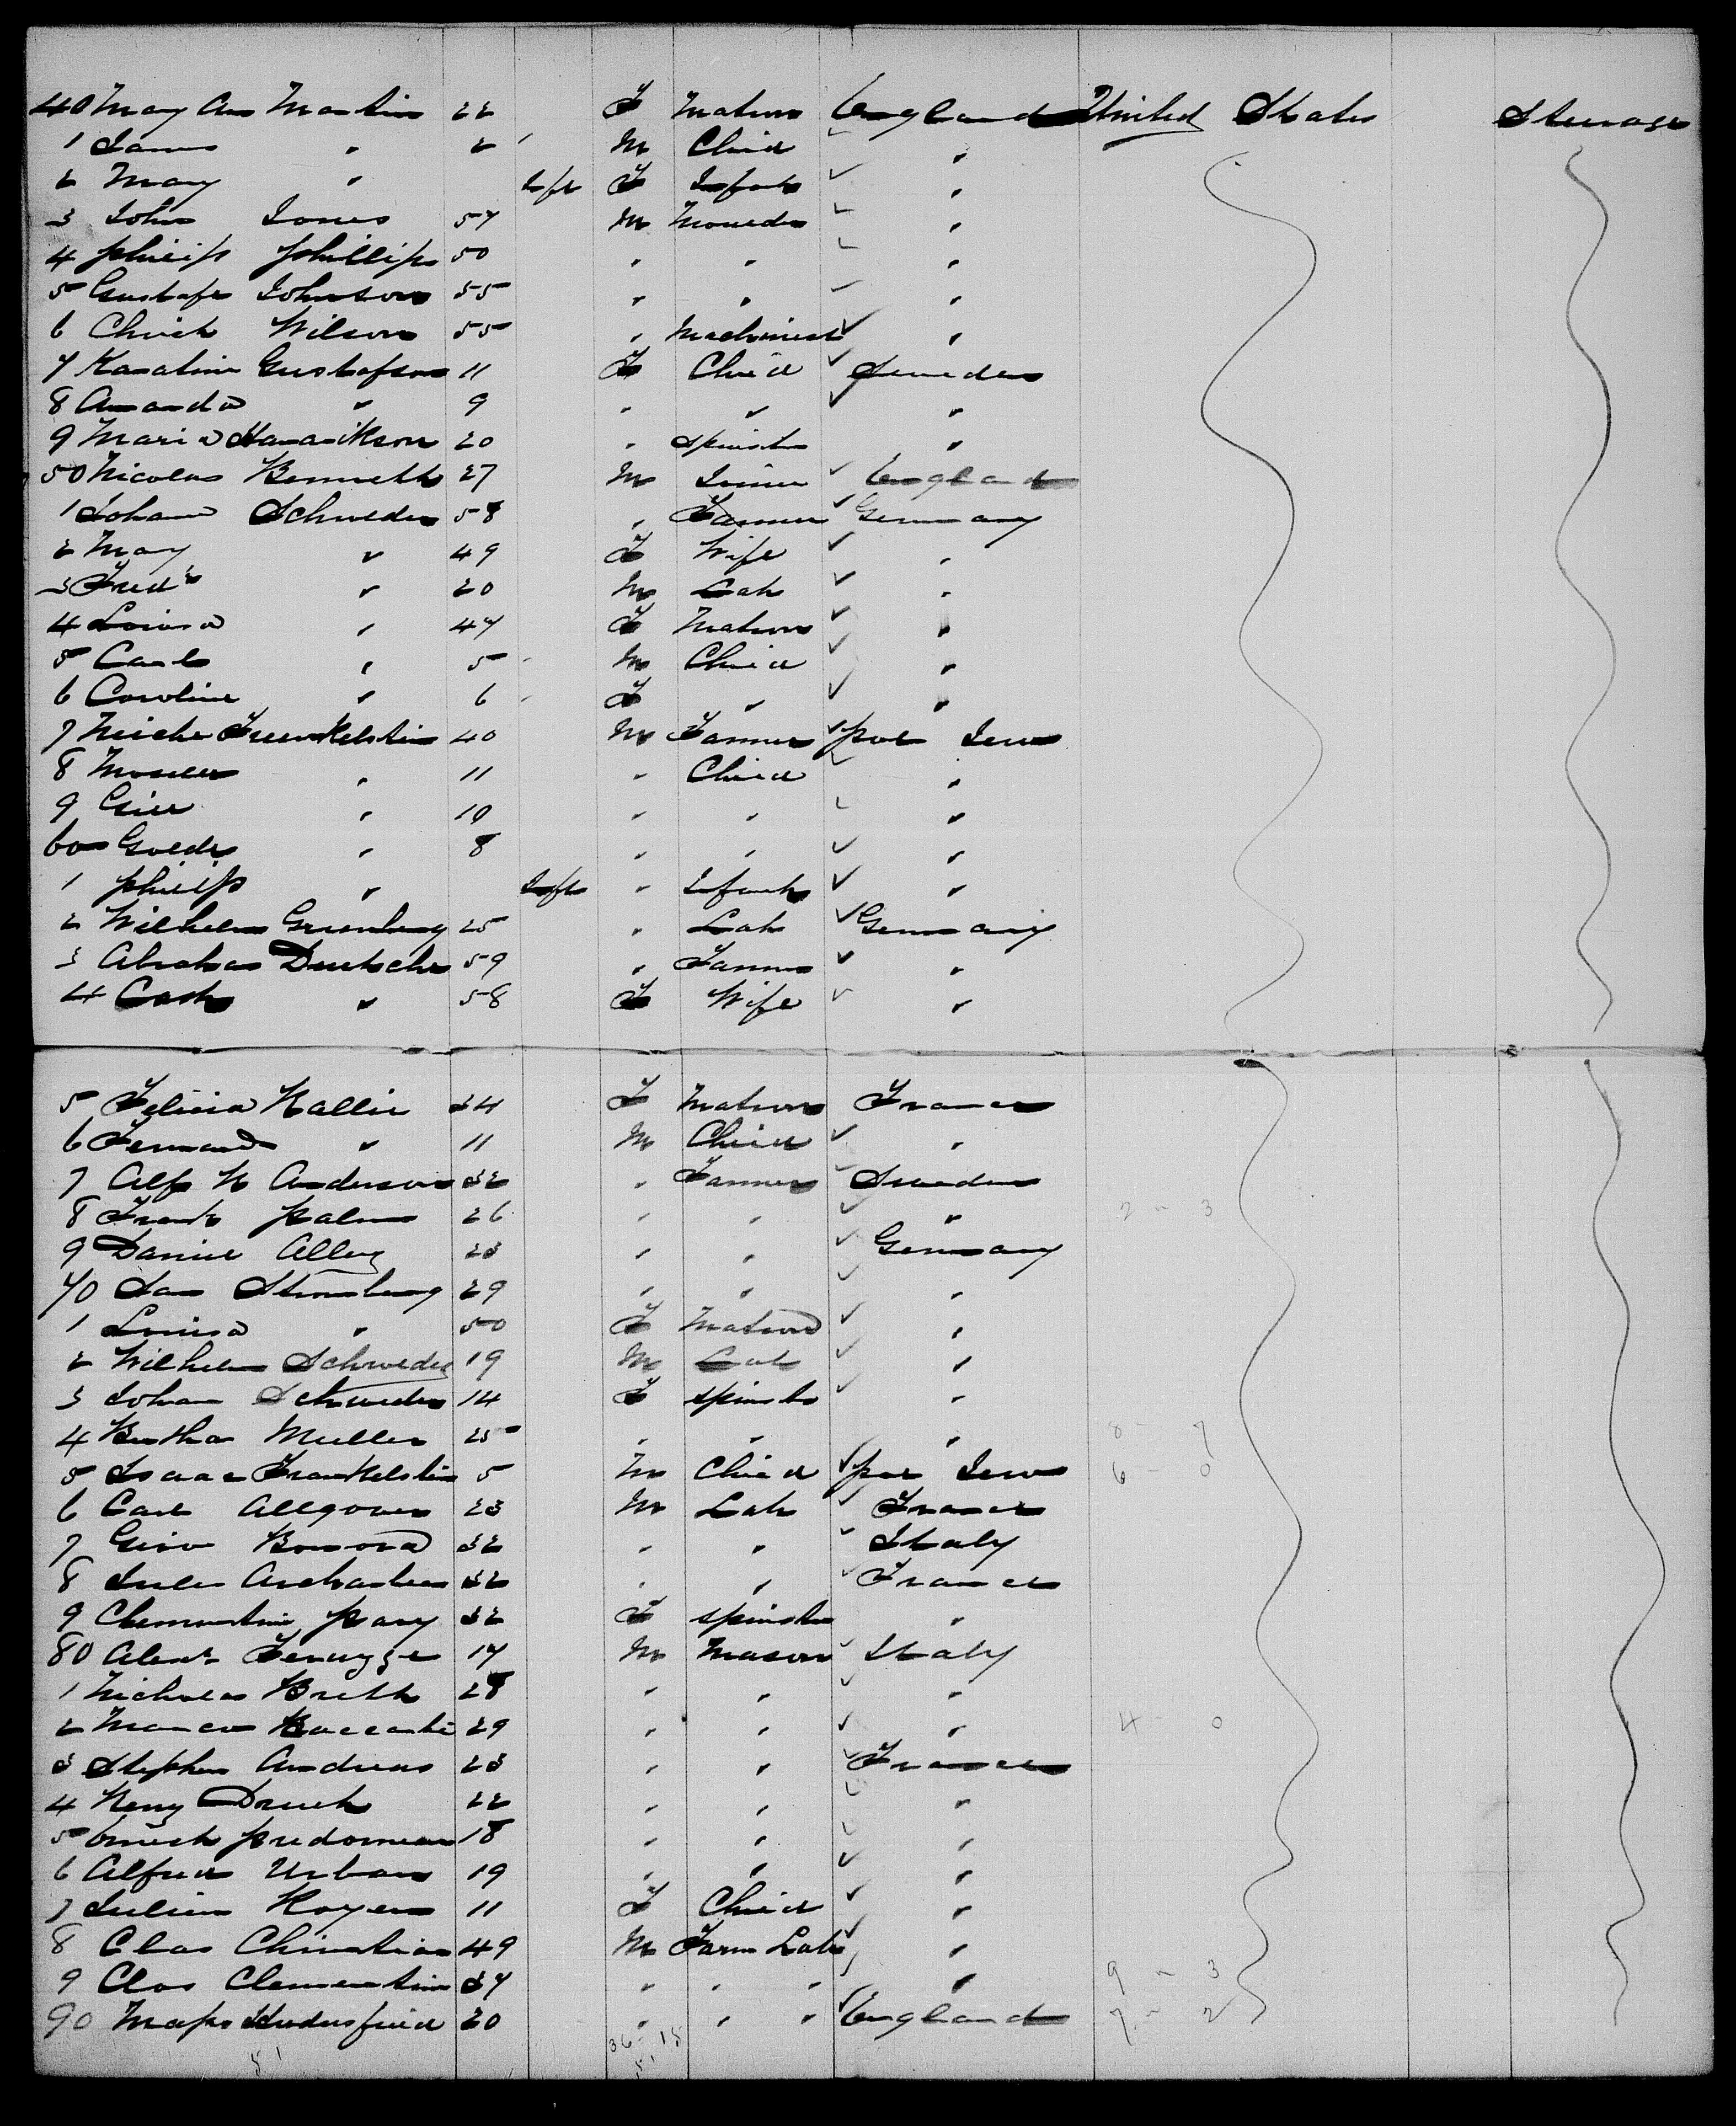 40 Mary Ann Martin 22 F Matron England United States Steerage
1 James " 2 M Child "
2 Mary " Inft F Infant "
3 John Jones 57 M Moulder "
4 Philip Phillips 50 " " "
5 Gustafr Johnson 55 " " "
6 Christ Wilson 55 " Machinist "
7 Karatine Gustafson 11 F Child Sweden
8 Amanda " 9 " " "
9 Maria 20 " Spinster "
50 Nicolas Bennett 27 M Joiner England
1 Johann Schweder 58 " Farmer Germany
2 Mary " 49 F Wife "
3 Fredk " 20 M Lab "
4 Louisa " 47 F Matron "
5 Carl " 5 M Child "
6 Caroline " 6 F " "
7 40 M Farmer Pol Jew
8 " 11 " Child "
9 " 10 " " "
60 " 8 " " "
1 Philip " Inft " Infant "
2 Wilhelm Grunberg 25 " Lab Germany
3 Abraham Deutscher 59 " Farmer "
4 Cath " 58 F Wife "
5 Felicia Kallir 34 F Matron France
6 Fernand " 11 M Child "
7 Alf K Anderson 32 " Farmer Sweden
8 Frank Palm 26 " " " 2 - 3
9 Daniel Alleg 23 " " Germany
70 Sam Stromberg 29 " " "
1 Louisa " 50 F Matron "
2 Wilhelm Schweder 19 M Lab "
3 Johann Schweder 14 F Spinster "
4 Bertha Muller 25 " " " 8 - 7
5 Isaac Frankelstein 5 M Child Pol Jew 6 - 0
6 Carl Allgover 23 M Lab France
7 Giro Bonora 32 " " Italy
8 Jules 32 " " France
9 Clementine Pary 32 F Spinster "
80 Alexr 17 M Mason Italy
1 Nicholas Brett 28 " " "
2 Marco 29 " " " 4 - 0
3 Stephen Andreas 23 " " France
4 Henry 22 " " "
5 18 " " "
6 Alfred Urban 19 " " "
7 Julien Hoyer 11 F Child "
8 Clas Christian 49 M Farm Lab "
9 Clas Clementine 37 " " " " 9 - 3
90 20 " " " England 7 - 2
51 36 - 15
51